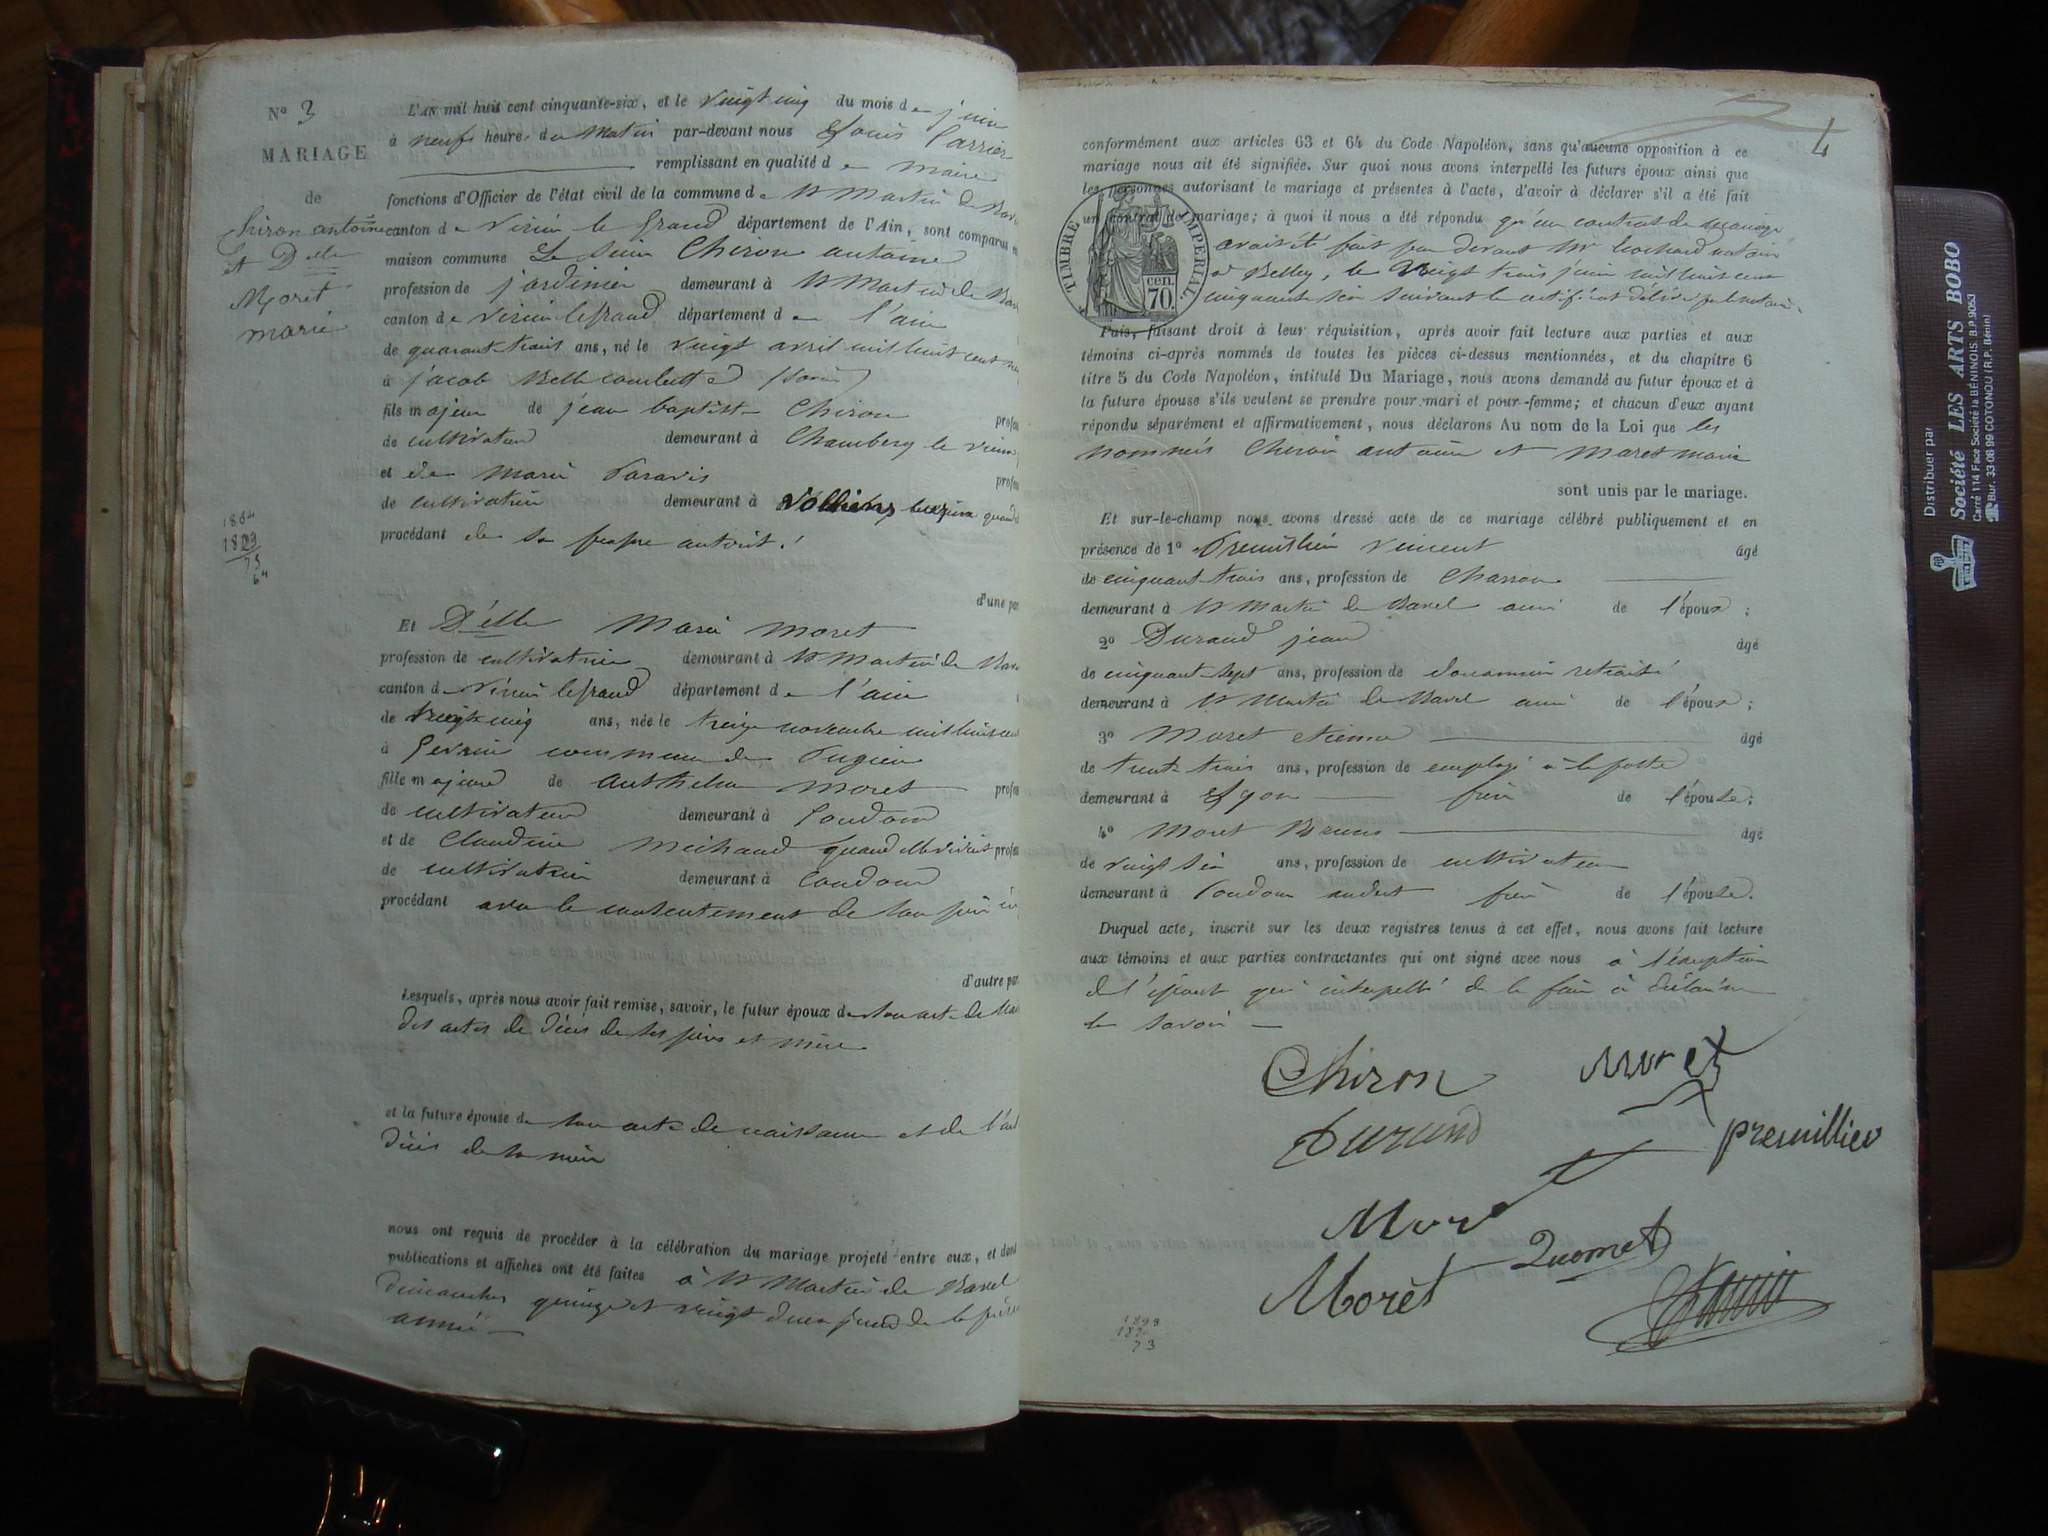 N° 3
MARIAGE
de
Chiron antoine
et Delle
Moret
marie
1884
1829
73
64
L'AN mil huit cent cinquante-six, et le vingt cinq du mois de juin
à neuf heures du matin par-devant nous Louis
remplissant en qualité de maire
fonctions d'Officier de l'état civil de la commune de St Martin de Bav
canton de Virieu le Grand département de l'Ain, sont comparus en
maison commune Le sieur Chiron antoine
profession de jardinier demeurant à St Martin de Bav
canton de Virieu le grand département de l'ain
de quarante trois ans, né le vingt avril mil huit cent
à jacob Bellecombette
fils majeur de jean baptiste Chiron profes
de cultivateur demeurant à Chambery le vieux
et de Marie profes
de cultivatrice demeurant à
procédant de sa propre autorité
d'une par
Et Delle Marie Moret
profession de cultivatrice demeurant à St Martin de Bav
canton de Virieu le grand département de l'ain
de vingt cinq ans, née le treize novembre mil huit cent
à commune de Pugieu
fille majeure de anthelme Moret profes
de cultivateur demeurant à
et de Claudine Michaud quand elle vivait profes
de cultivatrice demeurant à
procédant avec le consentement de son père
d'autre par
Lesquels, après nous avoir fait remise, savoir, le futur époux de son acte de
des actes de décès de ses père et mère
et la future épouse de son acte de naissance et de l'act
décès de sa mère
nous ont requis de procéder à la célébration du mariage projeté entre eux, et dont
publications et affiches ont été faites à St Martin de Bavel
dimanches quinze et vingt deux juin de la
année
4
conformément aux articles 63 et 64 du Code Napoléon, sans qu'aucune opposition à ce
mariage nous ait été signifiée. Sur quoi nous avons interpellé les futurs époux ainsi que
les personnes autorisant le mariage et présentes à l'acte, d'avoir à déclarer s'il a été fait
un contrat de mariage; à quoi il nous a été répondu qu'un contrat de mariage
avait été fait par devant Mr notaire
à Belley, le vingt trois juin mil huit cent
cinquante six suivant le certificat délivré par le notaire.
TIMBRE IMPERIAL
70 cen.
Puis, faisant droit à leur réquisition, après avoir fait lecture aux parties et aux
témoins ci-après nommés de toutes les pièces ci-dessus mentionnées, et du chapitre 6
titre 5 du Code Napoléon, intitulé Du Mariage, nous avons demandé au futur époux et à
la future épouse s'ils veulent se prendre pour mari et pour femme; et chacun d'eux ayant
répondu séparément et affirmativement, nous déclarons Au nom de la Loi que les
nommés Chiron antoine et Moret marie
sont unis par le mariage.
Et sur-le-champ nous avons dressé acte de ce mariage célébré publiquement et en
présence de 1° Premillieu vincent âgé
de cinquante trois ans, profession de Charron
demeurant à St Martin de Bavel ami de l'époux;
2° Durand jean âgé
de cinquante sept ans, profession de douanier retraité
demeurant à St Martin de Bavel ami de l'époux;
3° Moret etienne âgé
de trente trois ans, profession de employé à la poste
demeurant à Lyon frère de l'épouse;
4° Moret Bruno âgé
de vingt six ans, profession de cultivateur
demeurant à frère de l'épouse.
Duquel acte, inscrit sur les deux registres tenus à cet effet, nous avons fait lecture
aux témoins et aux parties contractantes qui ont signé avec nous à l'exception
de l'épouse qui interpellée de le faire a déclaré ne
le savoir
Chiron
Moret
Durand
premillieu
Moret
Quomet
1899
73
Distribuer par
Société LES ARTS BOBO
Carré 114 Face Société la BÉNINOIS. B.P. 9053
Bur. 33 08 99 COTONOU (R.P. Bénin)